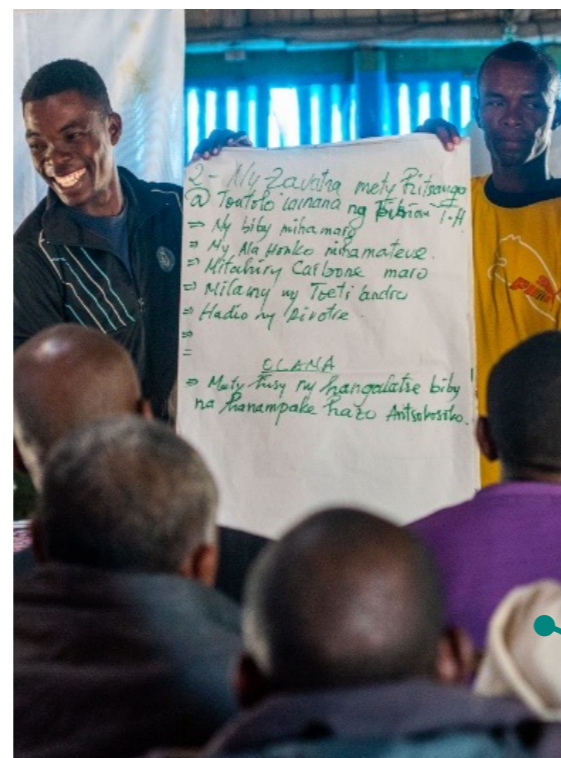 2- Ny Zavatra mety Hitranga
a Toatolo iainana ng
⇒ Ny biby mihamaro
⇒ Ny Ala Honko mihamateve.
⇒ Mitahiry Carbone maro
⇒ Milamy ny Toeti andro
⇒ Hadio ny
⇒
=
OLANA
⇒ Mety hisy ny hangalatse biby
na hanampake hazo Antsokosoko.